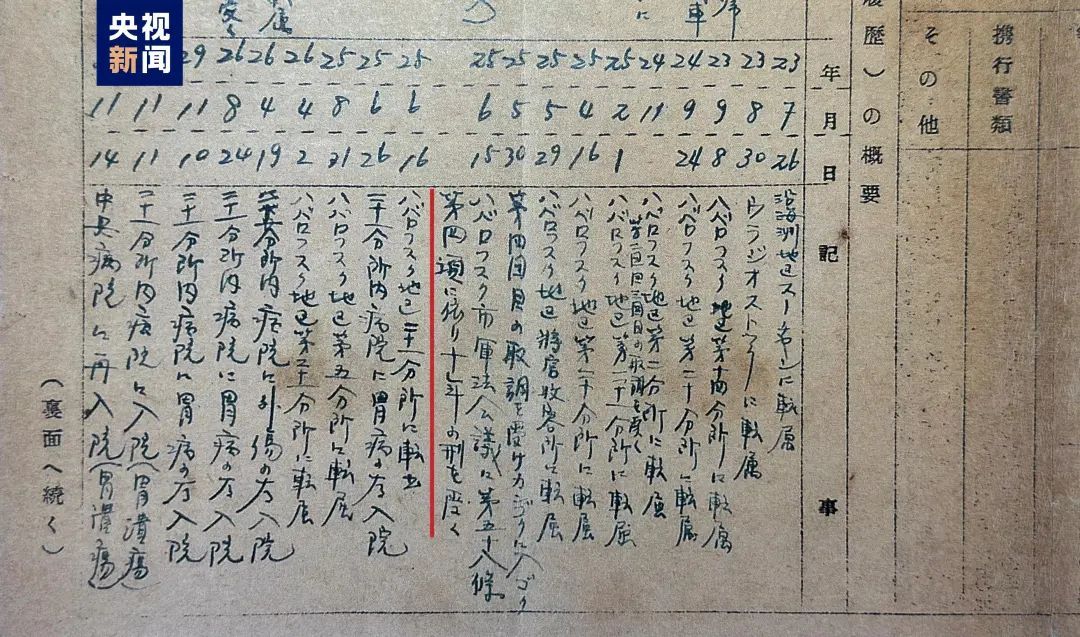 央视
新闻
携行書類
その他
歴)の概要
年 月 日 記事
23 7 26 沿海洲地区スーチャンに転属
23 8 30 ウラジオストックに転属
23 9 8 ハバロフスク地区第十四分所に転属
24 9 24 ハバロフスク地区第二十分所に転属
24 11 ハバロフスク地区第二分所に転属
第一回目二回目の取調を受く
25 2 1 ハバロフスク地区第二十分所に転属
25 4 16 ハバロフスク地区第二十分所に転属
25 5 29 ハバロフスク地区将官收容所に転属
25 5 30 第四回目の取調を受け に入ゴク
25 6 15 ハバロフスク市軍法会議に第五十八條
第四項に依り十 年の刑を受く
25 6 16 ハバロフスク地区二十一分所に転出
25 6 26 二十一分所内病院に胃病の为入院
25 8 21 ハバロフスク地区第五分所に転属
26 4 2 ハバロフスク地区第二十一分所に転属
26 4 19 分所内病院に外傷の为入院
26 8 24 二十一分所内病院に胃病の为入院
29 11 10 二十一分所内病院に胃病の为入院
11 11 二十一分所内病院に入院(胃潰瘍)
11 14 中央病院に再入院(胃潰瘍)
(裏面へ続く)